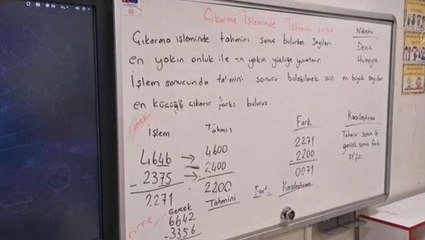 Çıkarma İşleminde Tahmini Sonuç
Çıkarma işleminde tahmini sonuç bulurken sayıları
en yakın onluk ile en yakın yüzlüğe yuvarlanır.
İşlem sonucunda tahmini sonucu bulabilmek için en büyük sayıdan
en küçüğü çıkarır farkı buluruz.
Nöbetçi
Deniz
Humeyra
Örnek
İşlem Tahmin Fark Karşılaştırma
4646 → 4600 2271 Tahmini sonuç ile
- 2375 → - 2400 - 2200 gerçek sonucun farkı
2271 2200 0071 71'dir
Gerçek Tahmini Karşılaştırma
6642
- 3356